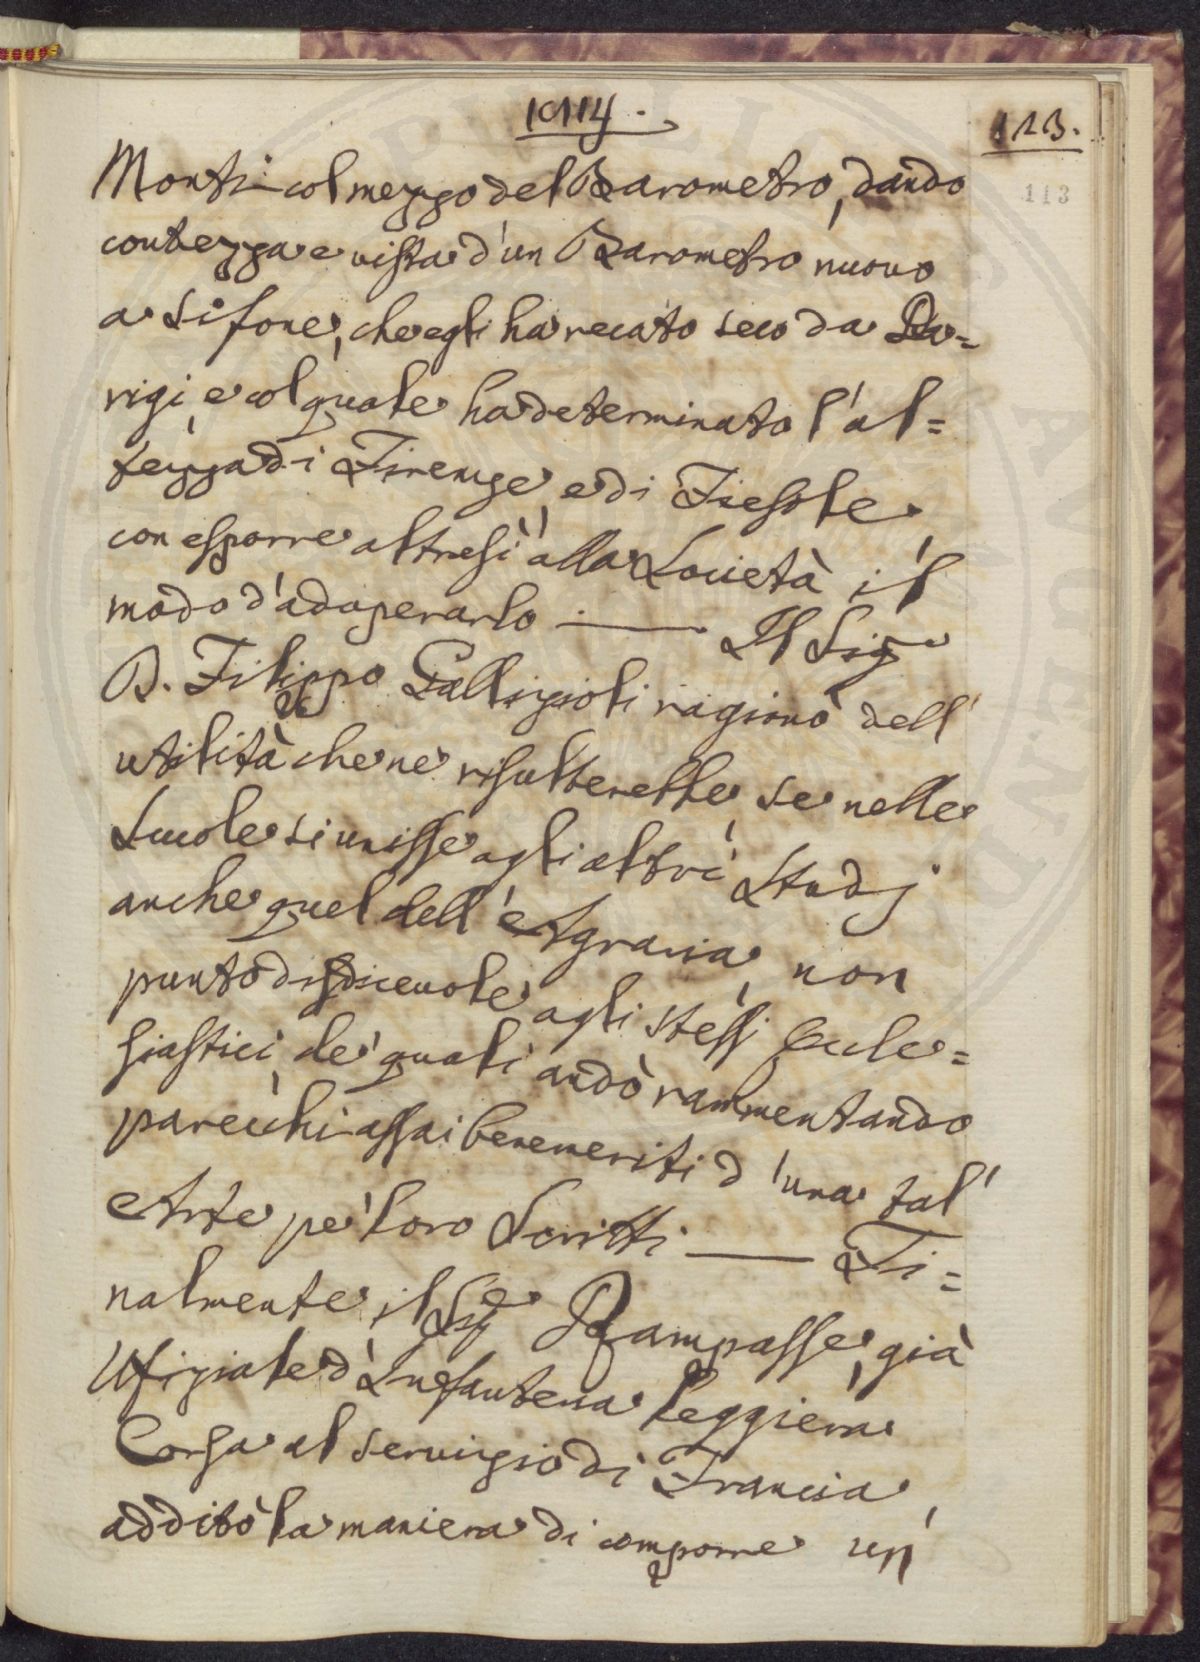 10114.
113.
113
Monti col mezzo del Barometro, dando
contezza e vista d'un Barometro nuovo
a Sifone, che egli ha recato seco da Pa=
rigi, e col quale ha determinato l'al=
tezza di Firenze, e di Fiesole,
con esporre altresì alla Società il
modo d'adoperarlo —— Il Sig.
D. Filippo Gallizioli ragionò dell'
utilità che ne risulterebbe, se nelle
Scuole si unisse agli altri Studj
anche quel dell'Agraria, non
punto disdicevole agli stessi Eccle=
siastici, de' quali andò rammentando
parecchi assai benemeriti d'una tal'
Arte pe' loro Scritti —— Fi=
nalmente il Sig.e Rampasse, già
Ufiziale d'Infanteria Leggiera
Corsa al servizio di Francia,
additò la maniera di comporre un